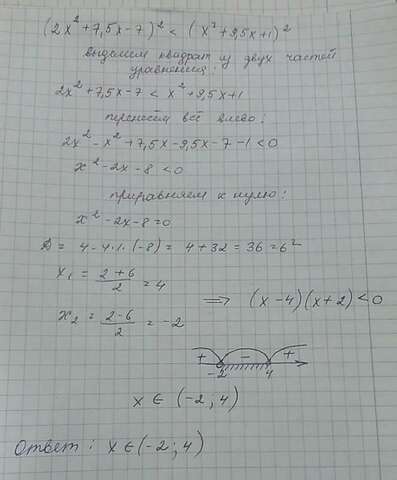 (2x² + 7,5x - 7)² < (x² + 9,5x + 1)²
выделим квадрат из двух частей
уравнения:
2x² + 7,5x - 7 < x² + 9,5x + 1
перенесём всё влево:
2x² - x² + 7,5x - 9,5x - 7 - 1 < 0
x² - 2x - 8 < 0
приравняем к нулю:
x² - 2x - 8 = 0
D = 4 - 4·1·(-8) = 4 + 32 = 36 = 6²
x₁ = (2+6)/2 = 4
⇒ (x - 4)(x + 2) < 0
x₂ = (2-6)/2 = -2
+ - +
-2 4
x ∈ (-2; 4)
Ответ: x ∈ (-2; 4)